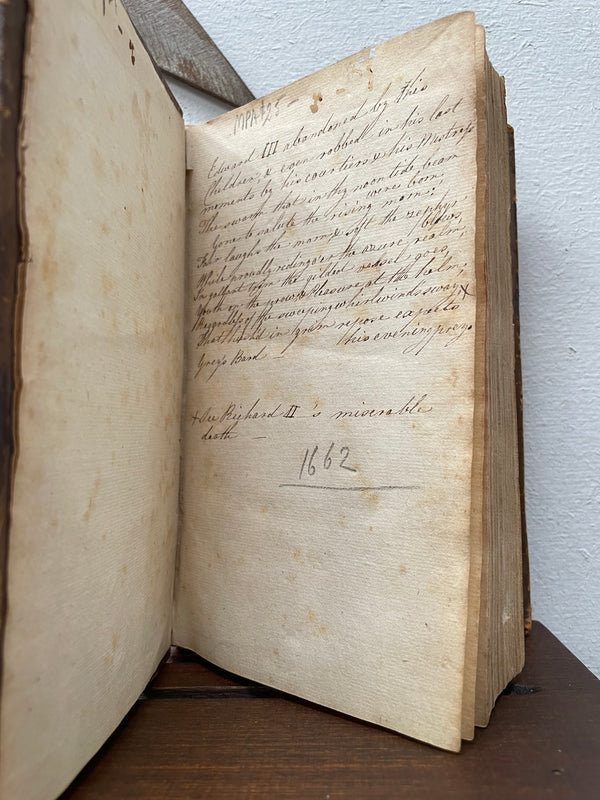 Edward III abandoned by this
Children, & even robbed in his last
moments by his courtiers & his Mistress
The swarm that in thy noontide beam
were born,
Gone to salute the rising morn:
Fair laughs the morn, & soft the zephyr
blows,
While proudly riding o'er the azure realm,
In gallant trim the gilded vessel goes,
Youth on the prow & Pleasure at the helm;
Regardless of the sweeping whirlwinds sway, X
That, hush'd in grim repose expects
his evening prey.
Grey's Bard —
+ See Richard II's miserable
death —
1662